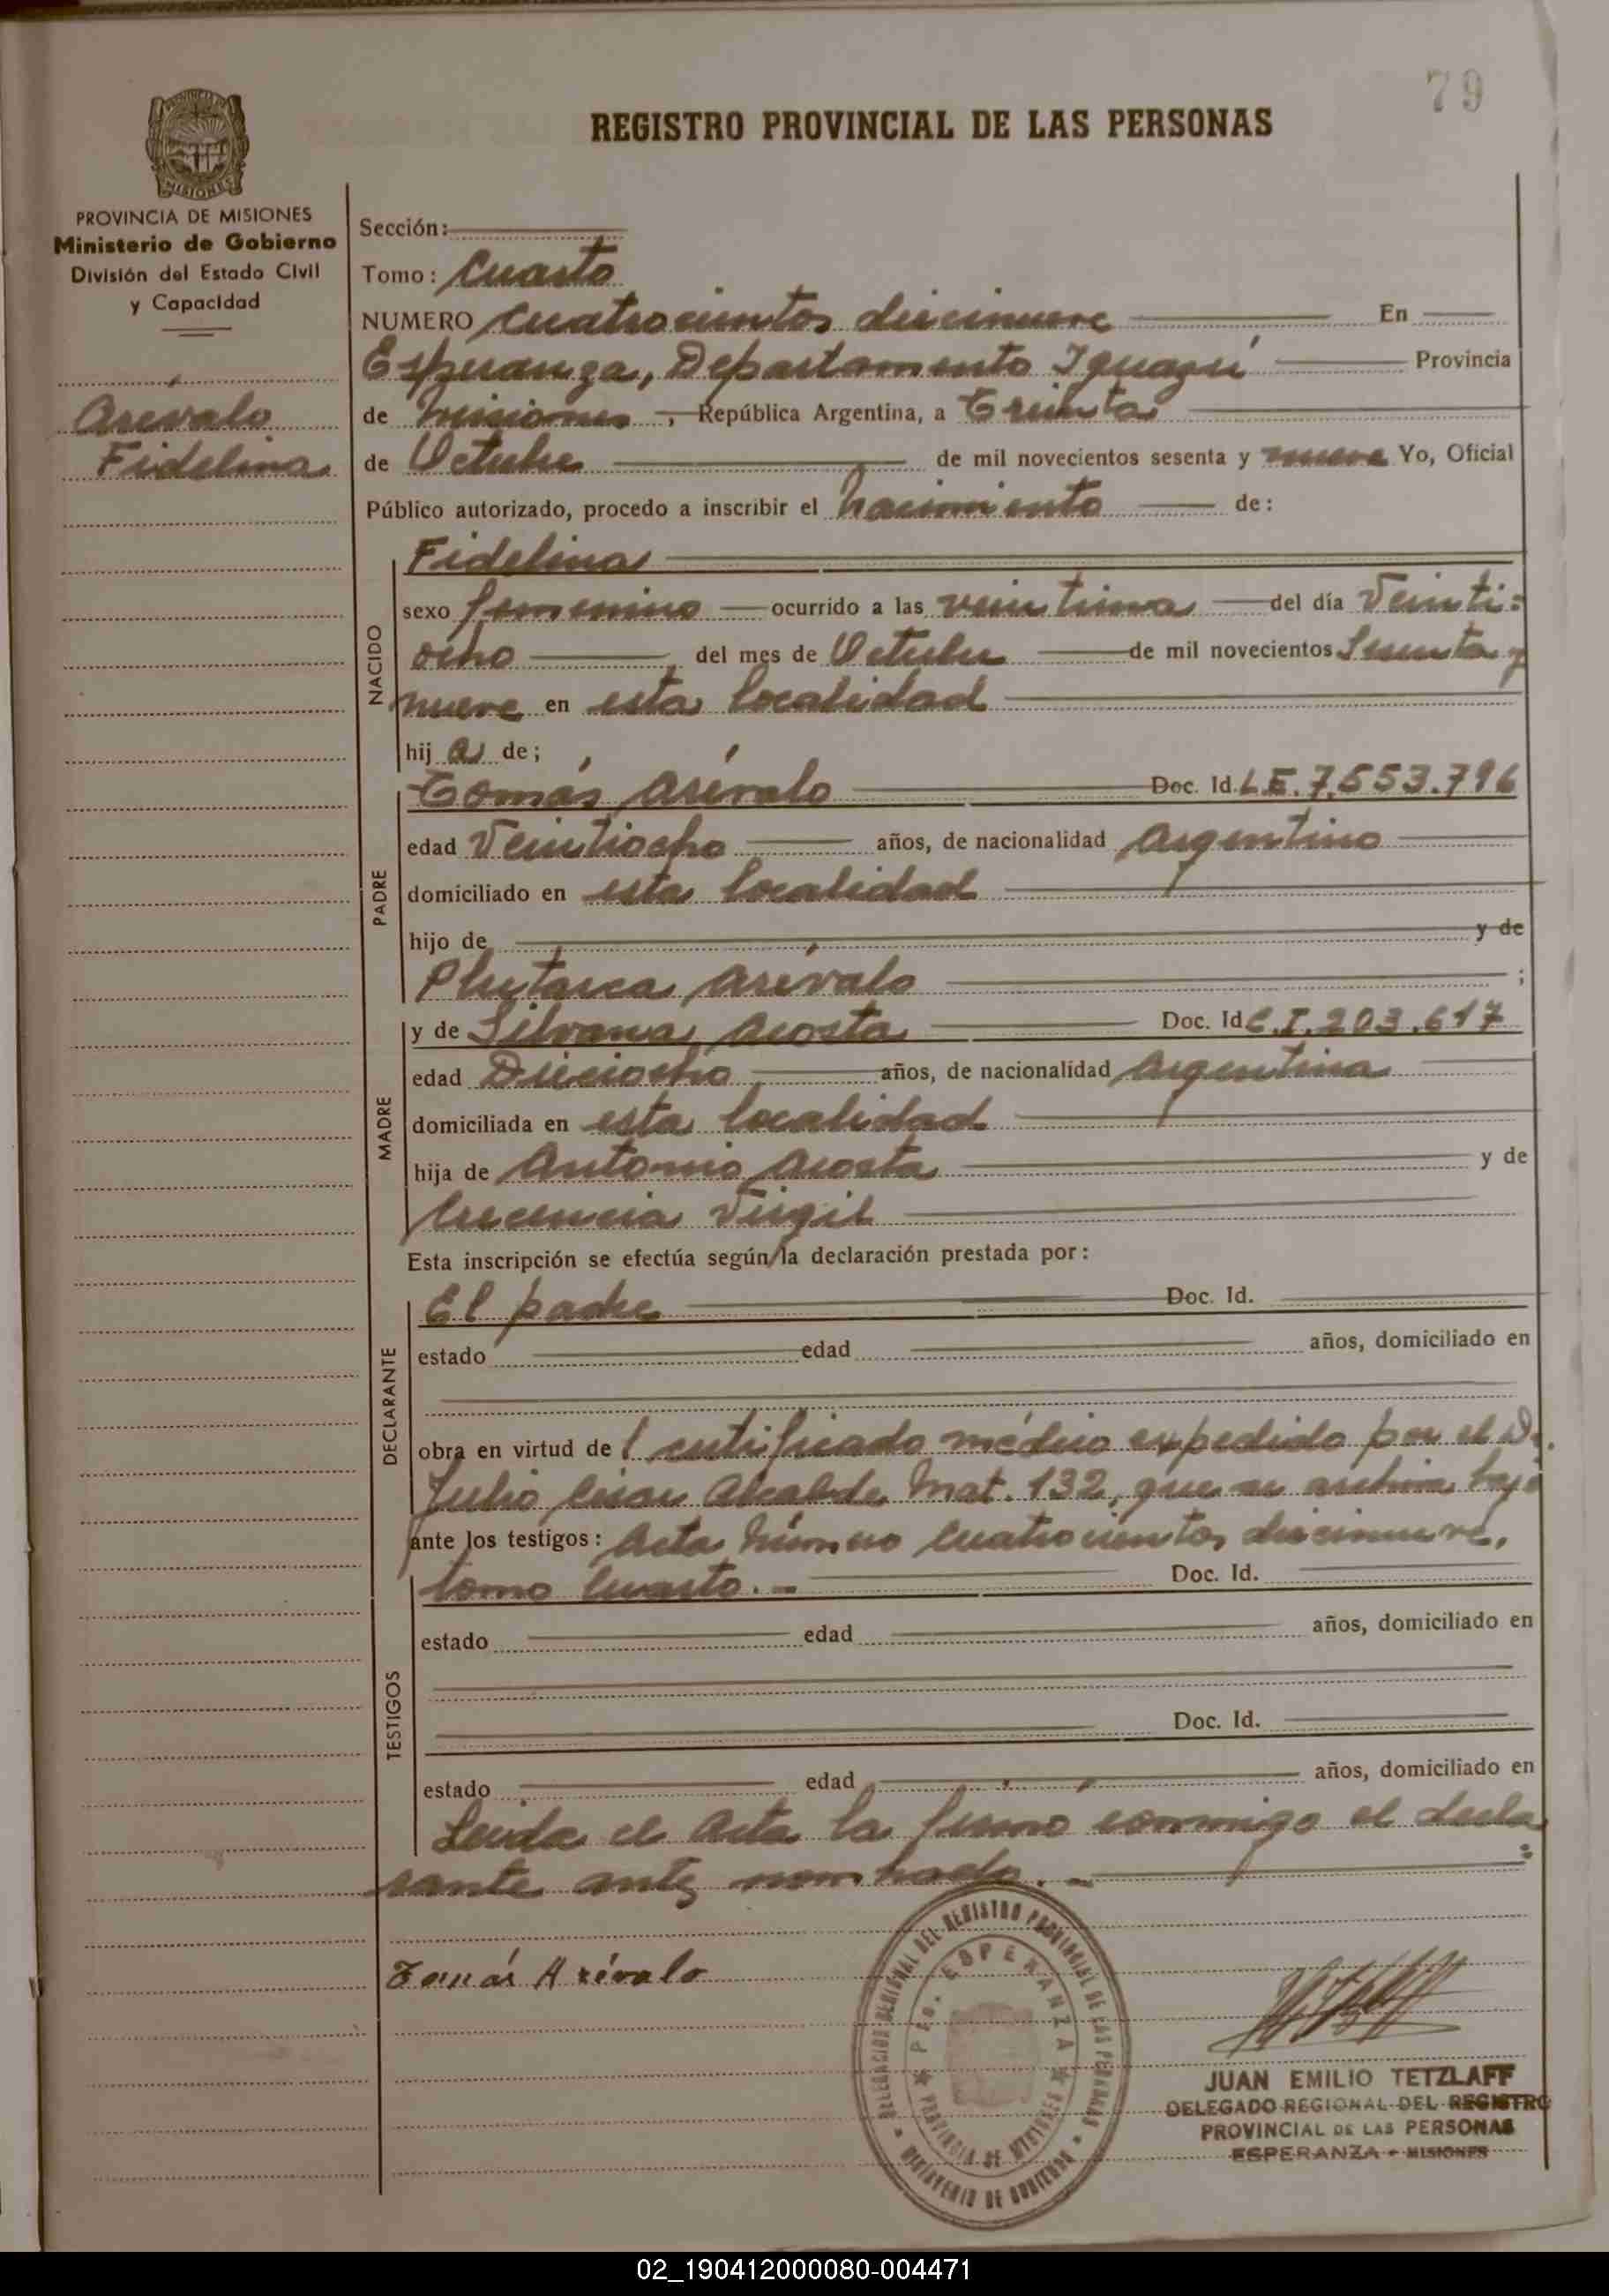 79
REGISTRO PROVINCIAL DE LAS PERSONAS
PROVINCIA DE MISIONES
Ministerio de Gobierno
División del Estado Civil
y Capacidad
Arévalo
Fidelina
Sección:
Tomo: Cuarto
NUMERO Cuatrocientos diecinueve En
Esperanza, Departamento Iguazú Provincia
de Misiones, República Argentina, a Treinta
de Octubre de mil novecientos sesenta y nueve Yo, Oficial
Público autorizado, procedo a inscribir el nacimiento de:
NACIDO
Fidelina
sexo femenino ocurrido a las veintiuna del día Veinti=
ocho del mes de Octubre de mil novecientos Sesenta y
nueve en esta localidad
hij a de;
PADRE
Tomás Arévalo Doc. Id. L.E. 7.553.796
edad Veintiocho años, de nacionalidad Argentino
domiciliado en esta localidad
hijo de y de
Plutarca Arévalo ;
MADRE
y de Silvana Acosta Doc. Id. C.I. 203.617
edad Dieciocho años, de nacionalidad Argentina
domiciliada en esta localidad
hija de Antonio Acosta y de
Crecencia Virgil
Esta inscripción se efectúa según la declaración prestada por:
DECLARANTE
El padre Doc. Id.
estado edad años, domiciliado en
obra en virtud de l certificado médico expedido por el Dr.
Julio César Alcalde Mat. 132, que se archiva bajo
ante los testigos: Acta Número Cuatrocientos diecinueve,
TESTIGOS
tomo Cuarto.- Doc. Id.
estado edad años, domiciliado en
Doc. Id.
estado edad años, domiciliado en
Leída el Acta la firmó conmigo el decla=
rante antes nombrado.-
Tomás Arévalo
DELEGACION REGIONAL DEL REGISTRO PROVINCIAL DE LAS PERSONAS
MINISTERIO DE GOBIERNO
ESPERANZA
PROVINCIA DE MISIONES
JUAN EMILIO TETZLAFF
DELEGADO REGIONAL DEL REGISTRO
PROVINCIAL DE LAS PERSONAS
ESPERANZA - MISIONES
02_190412000080-004471